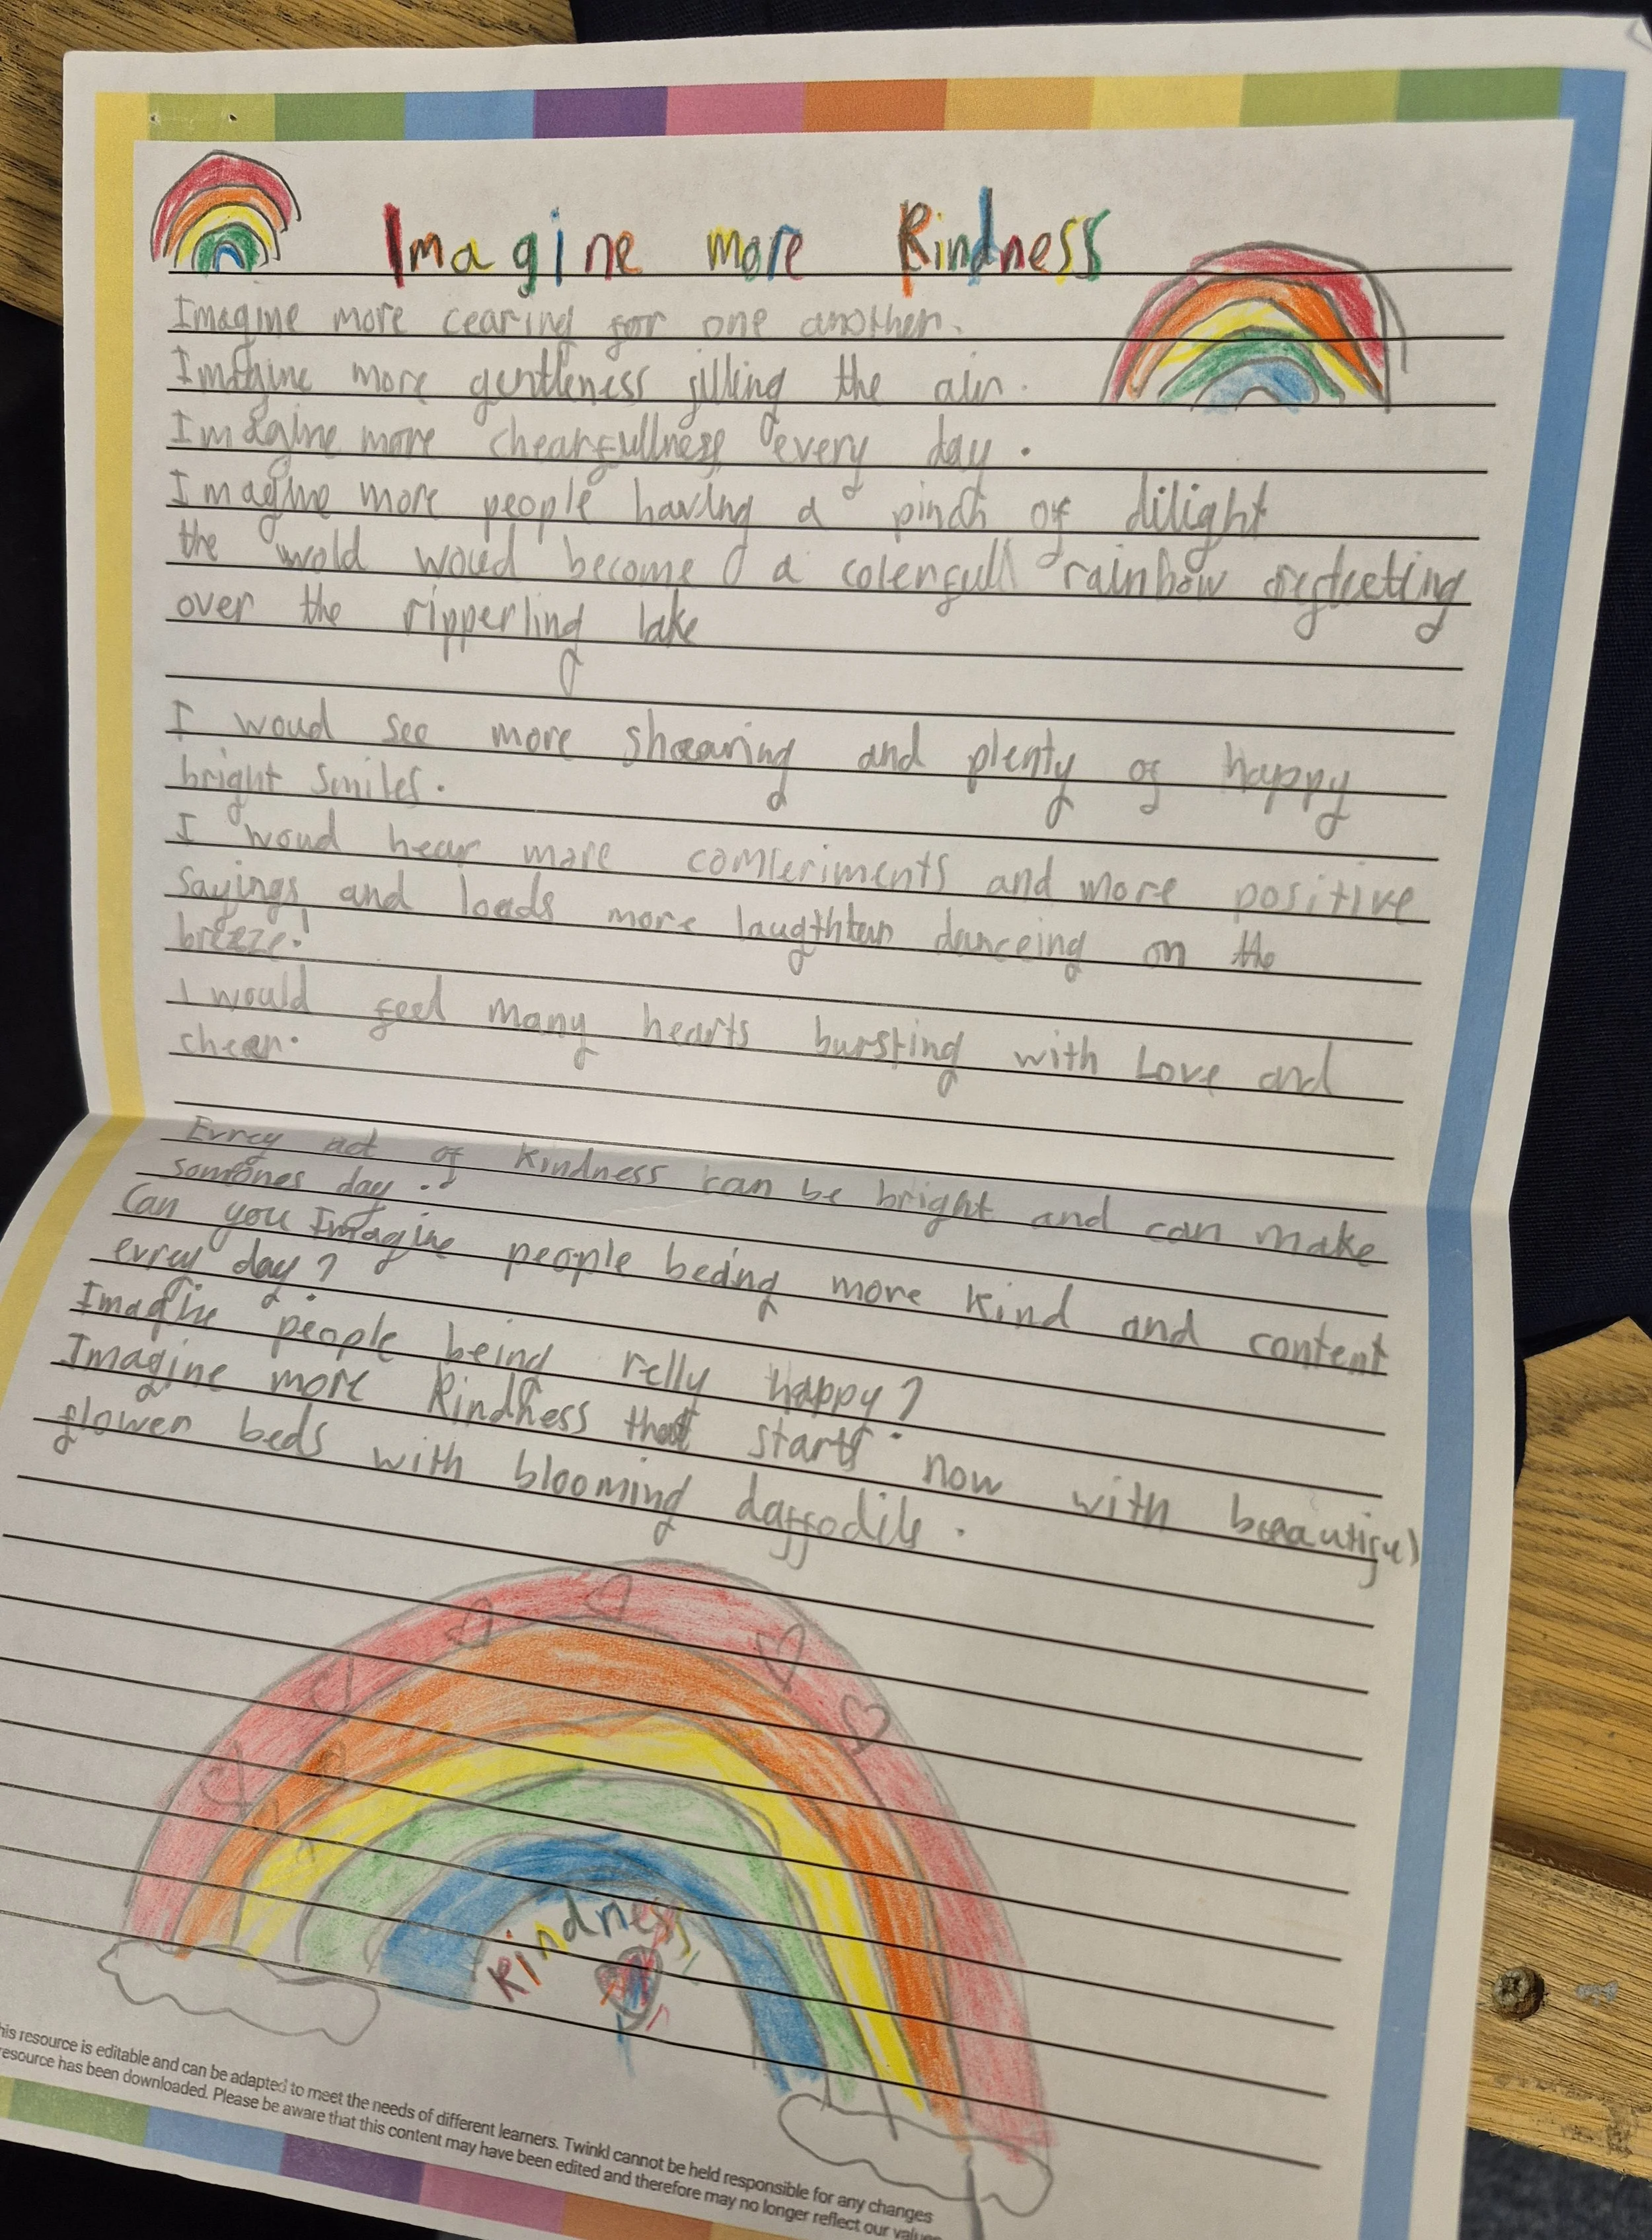 Imagine more Kindness
Imagine more cearing for one another.
Imagine more gentleness filling the air.
Imagine more chearfullness every day.
Imagine more people having a pinch of dilight
the wold woud become a colerfull rainbow reflecting
over the ripperling lake
I woud see more shearing and plenty of happy
bright smiles.
I woud hear more comleriments and more positive
sayings and loads more laugthter danceing on the
breeze!
I would feel many hearts bursting with Love and
cheer.
Evrey act of kindness can be bright and can make
somones day.
Can you Imagine people being more kind and content
evrey day?
Imagine people being relly happy?
Imagine more Kindness that starts now with beautiful
flower beds with blooming daffodils.
Kindness
his resource is editable and can be adapted to meet the needs of different learners. Twinkl cannot be held responsible for any changes
resource has been downloaded. Please be aware that this content may have been edited and therefore may no longer reflect our values